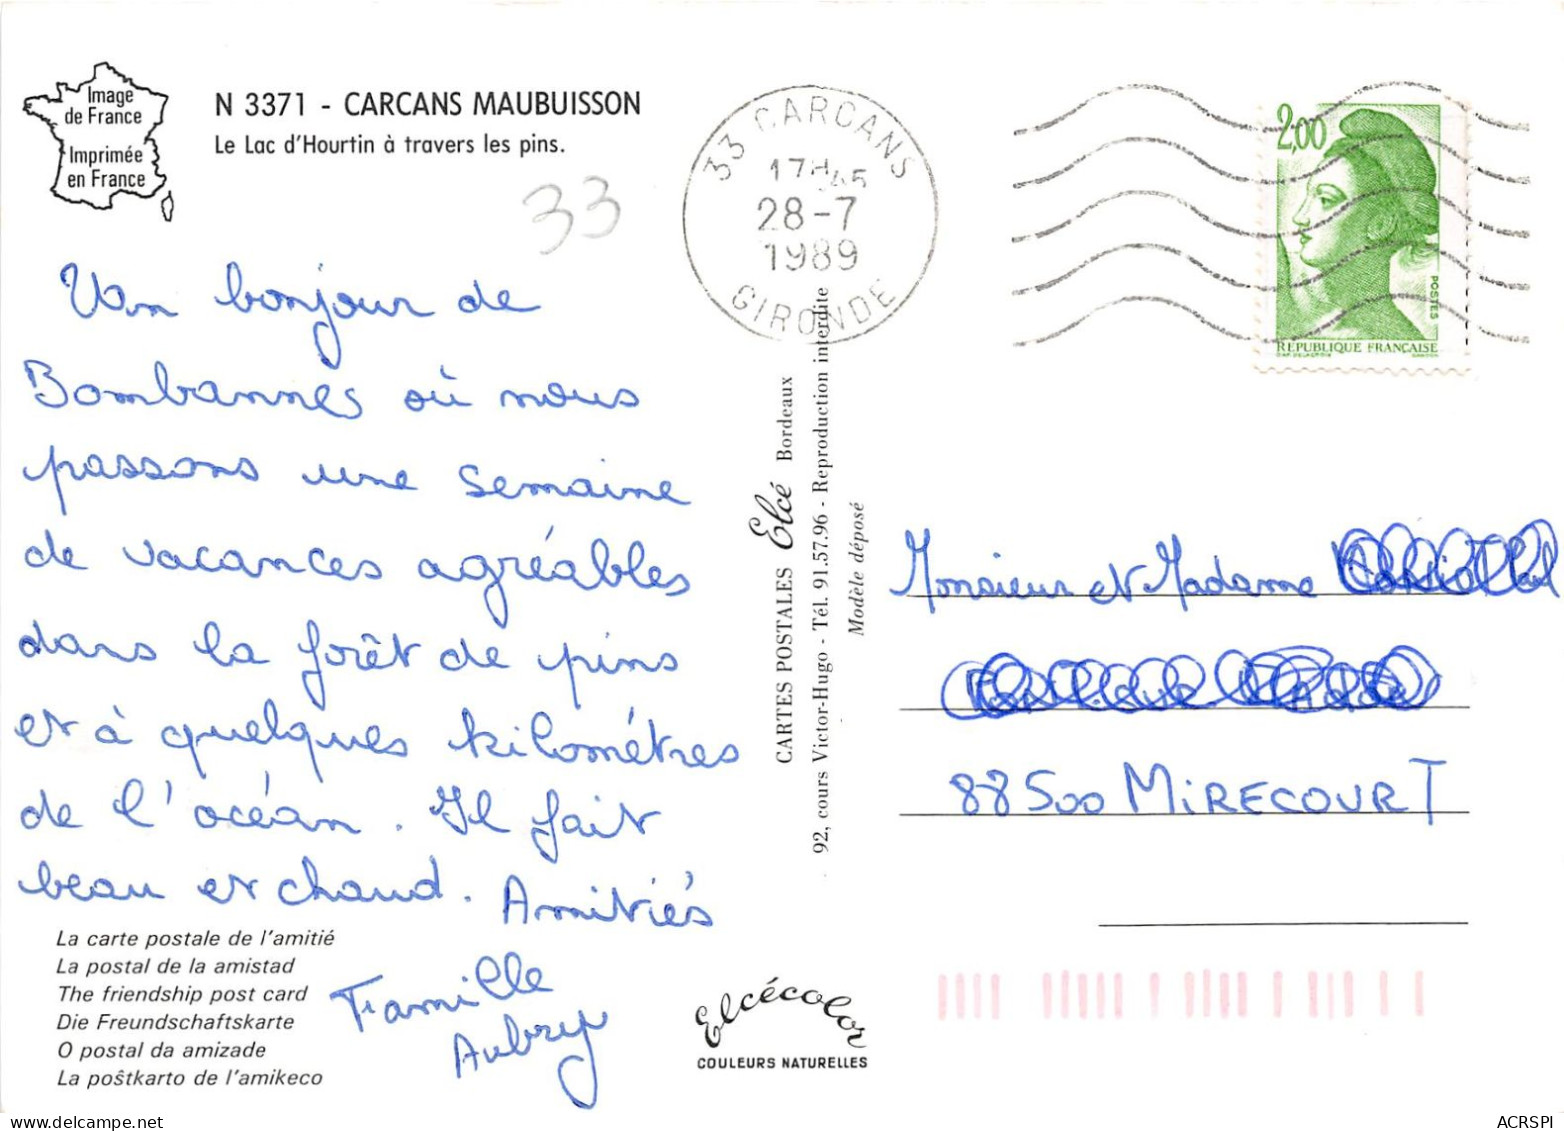 Image
de France
Imprimée
en France
N 3371 - CARCANS MAUBUISSON
Le Lac d'Hourtin à travers les pins.
33
33 CARCANS
17H45
28-7
1989
GIRONDE
2,00
POSTES
REPUBLIQUE FRANÇAISE
Un bonjour de
Bombannes où nous
passons une semaine
de vacances agréables
dans la forêt de pins
et à quelques kilométres
de l'océan. Il fait
beau et chaud. Amitiés
Famille
Aubry
La carte postale de l'amitié
La postal de la amistad
The friendship post card
Die Freundschaftskarte
O postal da amizade
La poŝtkarto de l'amikeco
CARTES POSTALES Elcé Bordeaux
92, cours Victor-Hugo - Tél. 91.57.96 - Reproduction interdite
Modèle déposé
Elcécolor
COULEURS NATURELLES
Monsieur et Madame
88500 MIRECOURT
ACRSPI